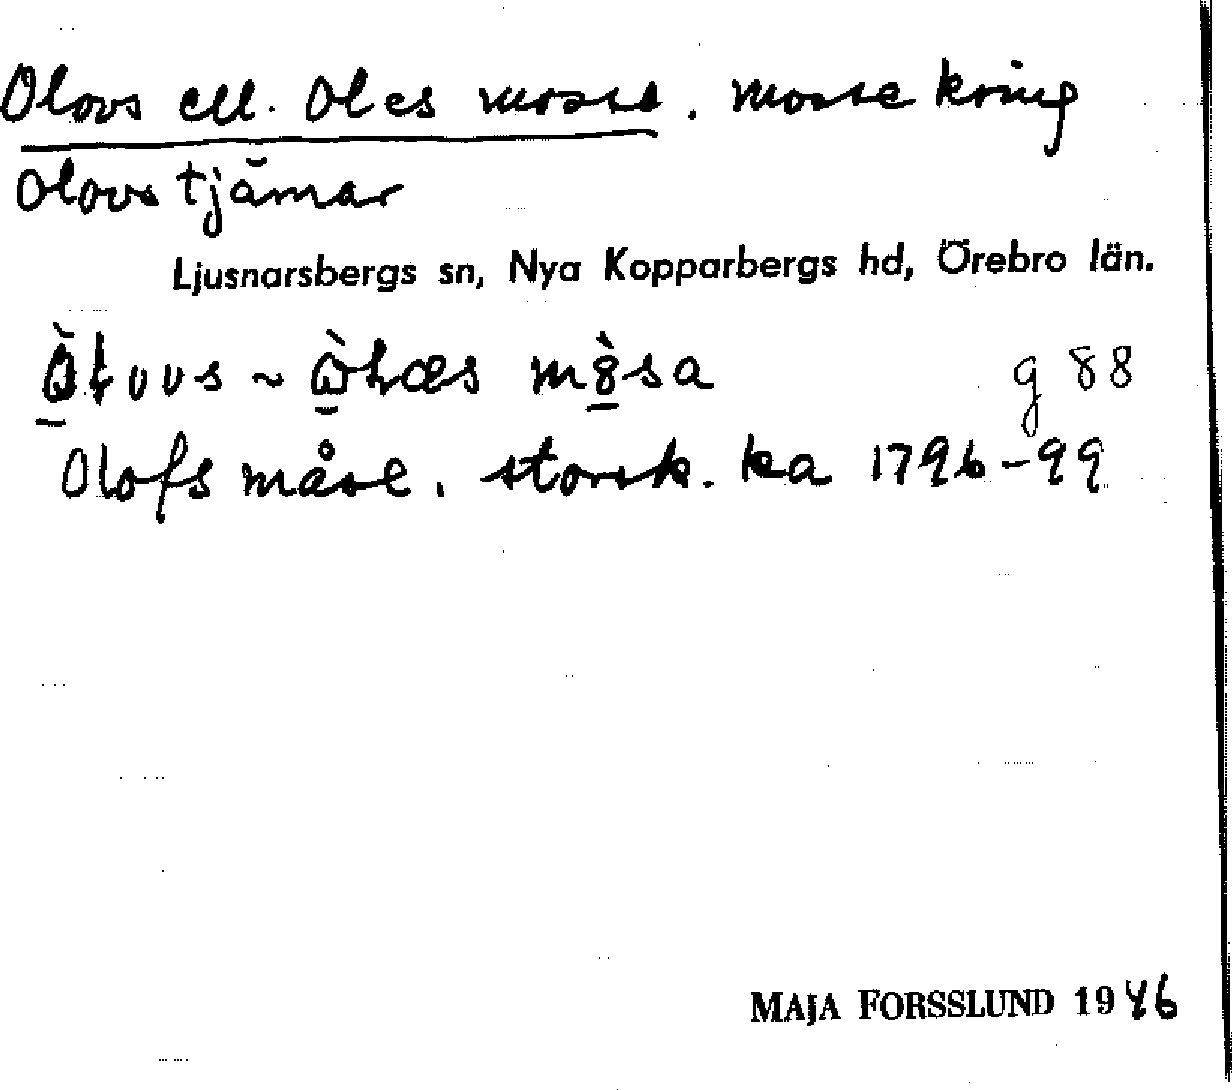 Olovs ell. Oles mosse. mosse kring
Olovs tjärnar
Ljusnarsbergs sn, Nya Kopparbergs hd, Örebro län.
g 88
Olofs måse. storsk. ka 1796-99
MAJA FORSSLUND 1946